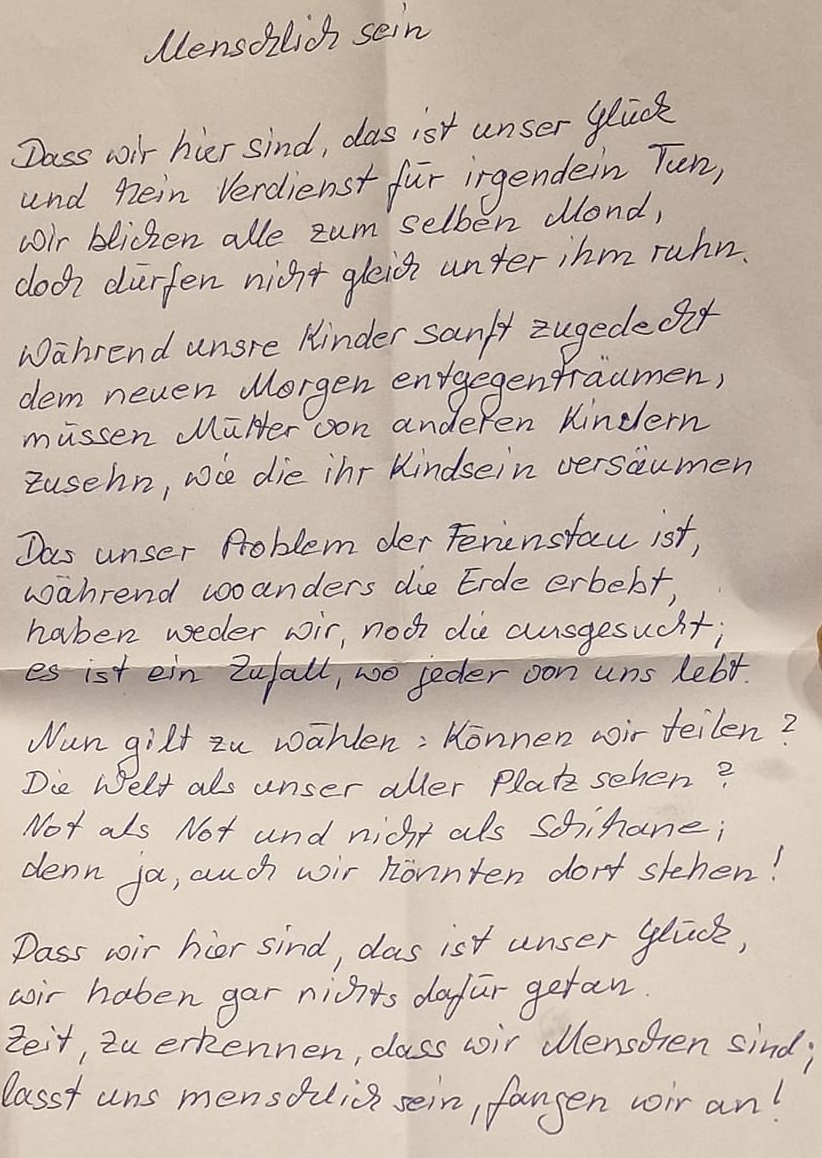 Menschlich sein
Dass wir hier sind, das ist unser Glück
und kein Verdienst für irgendein Tun,
wir blicken alle zum selben Mond,
doch dürfen nicht gleich unter ihm ruhn.
Während unsre Kinder sanft zugedeckt
dem neuen Morgen entgegenträumen,
müssen Mütter von anderen Kindern
zusehn, wie die ihr Kindsein versäumen
Das unser Problem der Ferienstau ist,
während woanders die Erde erbebt,
haben weder wir, noch die ausgesucht;
es ist ein Zufall, wo jeder von uns lebt.
Nun gilt zu wählen: Können wir teilen?
Die Welt als unser aller Platz sehen?
Not als Not und nicht als Schikane;
denn ja, auch wir könnten dort stehen!
Dass wir hier sind, das ist unser Glück,
wir haben gar nichts dafür getan.
Zeit, zu erkennen, dass wir Menschen sind;
lasst uns menschlich sein, fangen wir an!